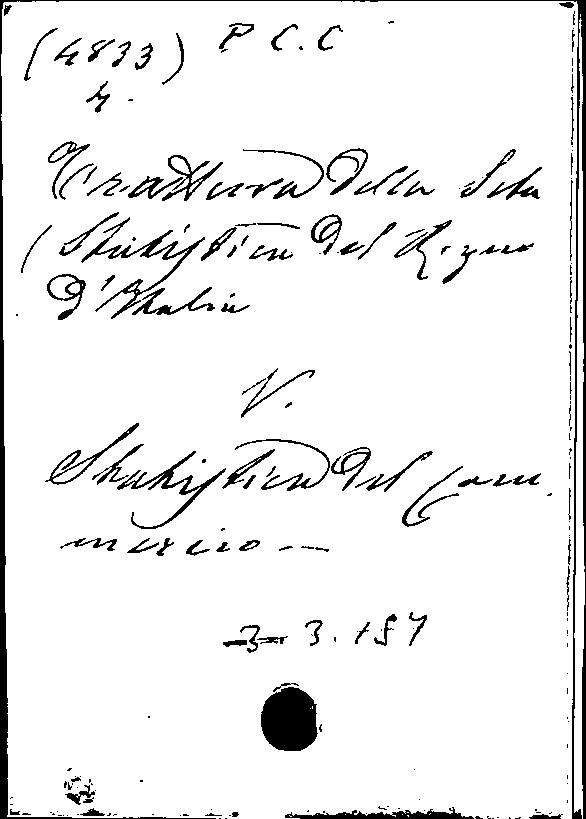 (4833) P C. C
4.
Trattura della Seta
(Statistica del Regno
D'Italia
V.
Statistica del Com.
mercio —
3. 157